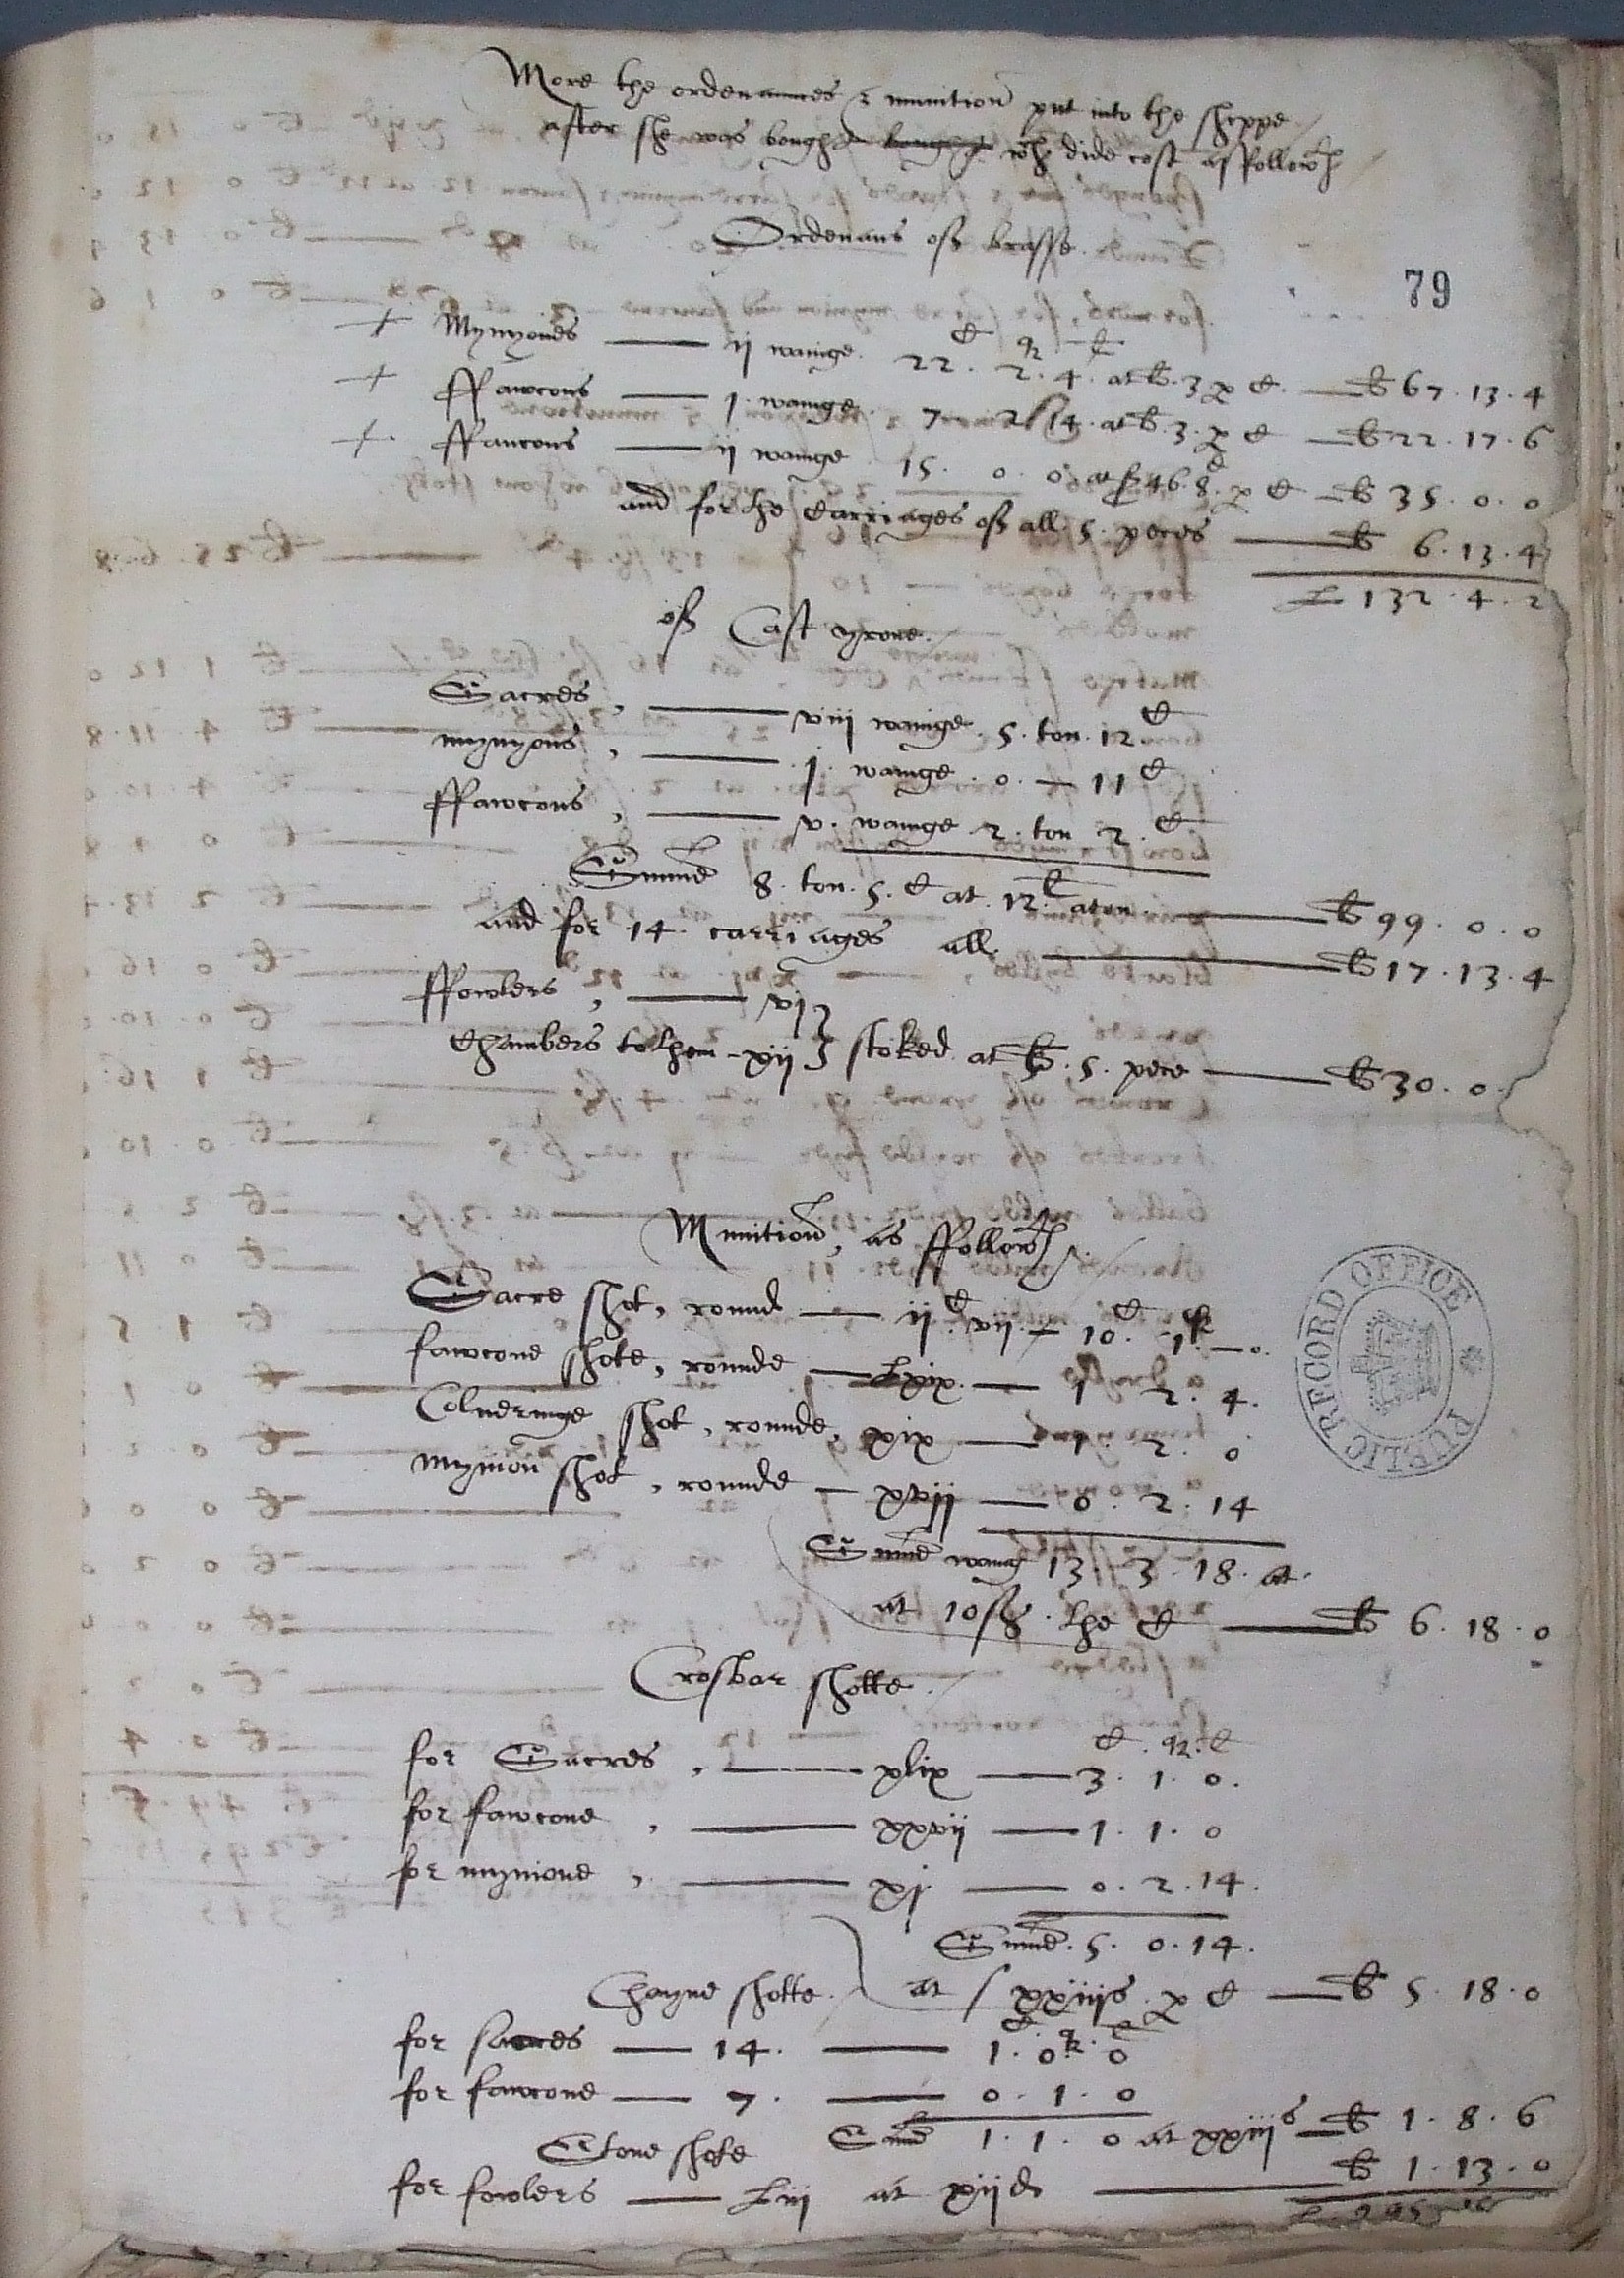 More the ordenannes & munition put into the shippe
after she was bought bought wch dide cost as ffollowth
Ordenans off brasse
79
+ Mynyones — ii wainge 22 C. 2 qr. 4 l. at £ 3 p C. — £ 67. 13. 4
+ ffawcons — j. wainge. 7. 2. 14. at £. 3. p C — £ 22. 17. 6
+ ffaucons — ii wainge 15. 0. 0 at s 46. 8 d. p C — £ 35. 0. 0
and for the Carriages off all. 5. peces — £ 6. 13. 4
£ 132. 4. 2
off Cast yrone.
Sacres, — viii wainge. 5. ton. 12 C
mynyons, — j. wainge. 0. — 11 C
ffawcons, — v. wainge 2. ton 2. C
Summe 8. ton. 5. C at. 12 l. a ton — £ 99. 0. 0
and for 14. carriages all. — £ 17. 13. 4
ffowlers, — vi
Chambers to them — xii } stoked at £. 5. pece — £ 30. 0.
Munition, as ffollowth
Sacre shot, rounde — ii C. vii. — 10 C. 1 qr. — 0.
fawcone shote, rounde — Lxix. — 1 2. 4.
Colueringe shot, rounde, xix — 1. 2. 0
mynion shot, rounde — xvij — 0. 2. 14
Summe waing 13. 3. 18. at.
at 10 s. the C — £ 6. 18. 0
Crosbar shotte.
C. qr. l
for Sacres, — xlix — 3. 1. 0.
for fawcone, — xxvij — 1. 1. 0
for mynione, — xj — 0. 2. 14.
Summe. 5. 0. 14.
Chayne shotte. at xxiiis. p C — £ 5. 18. 0
C. qr. l
for sacres — 14. — 1. 0. 0
for fawcone — 7. — 0. 1. 0
Summe 1. 1. 0 at xxiii s — £ 1. 8. 6
Stone shote
for fowlers — Liii at xii d — £ 1. 13. 0
£. 295
PUBLIC RECORD OFFICE